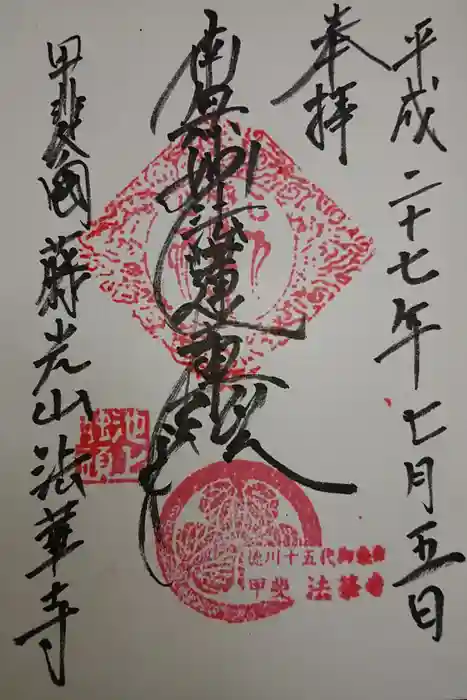 平成二十七年七月五日
奉拝
南無妙法蓮華経
甲斐國 藤光山法華寺
池上
徳川十五代御
甲斐 法華寺